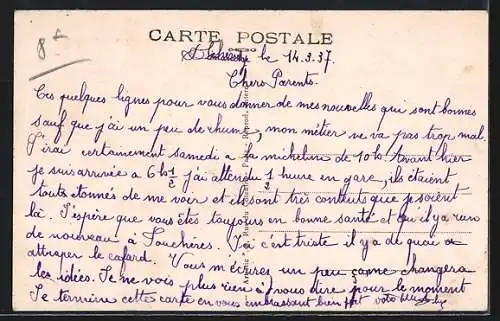 8
CARTE POSTALE
le 14.3.37.
Chers Parents.
Ces quelques lignes pour vous donner de mes nouvelles qui sont bonnes
sauf que j'ai un peu de rhume, mon métier ne va pas trop mal.
J'irai certainement samedi a la micheline de 10h. Avant hier
je suis arrivée a 6h 1/2 j'ai attendu 1 heure en gare, ils étaient
touts étonnés de me voir et ils sont très contents que je sois
là. J'espère que vous êtes toujours en bonne santé et qu'il y a rien
de nouveau à Fouchères. Ici c'est triste il y a de quoi a
attraper le cafard. Vous m'écrirez un peu çame changera
les idées. Je ne vois plus rien à vous dire pour le moment
Je termine cette carte en vous embrassant bien fort